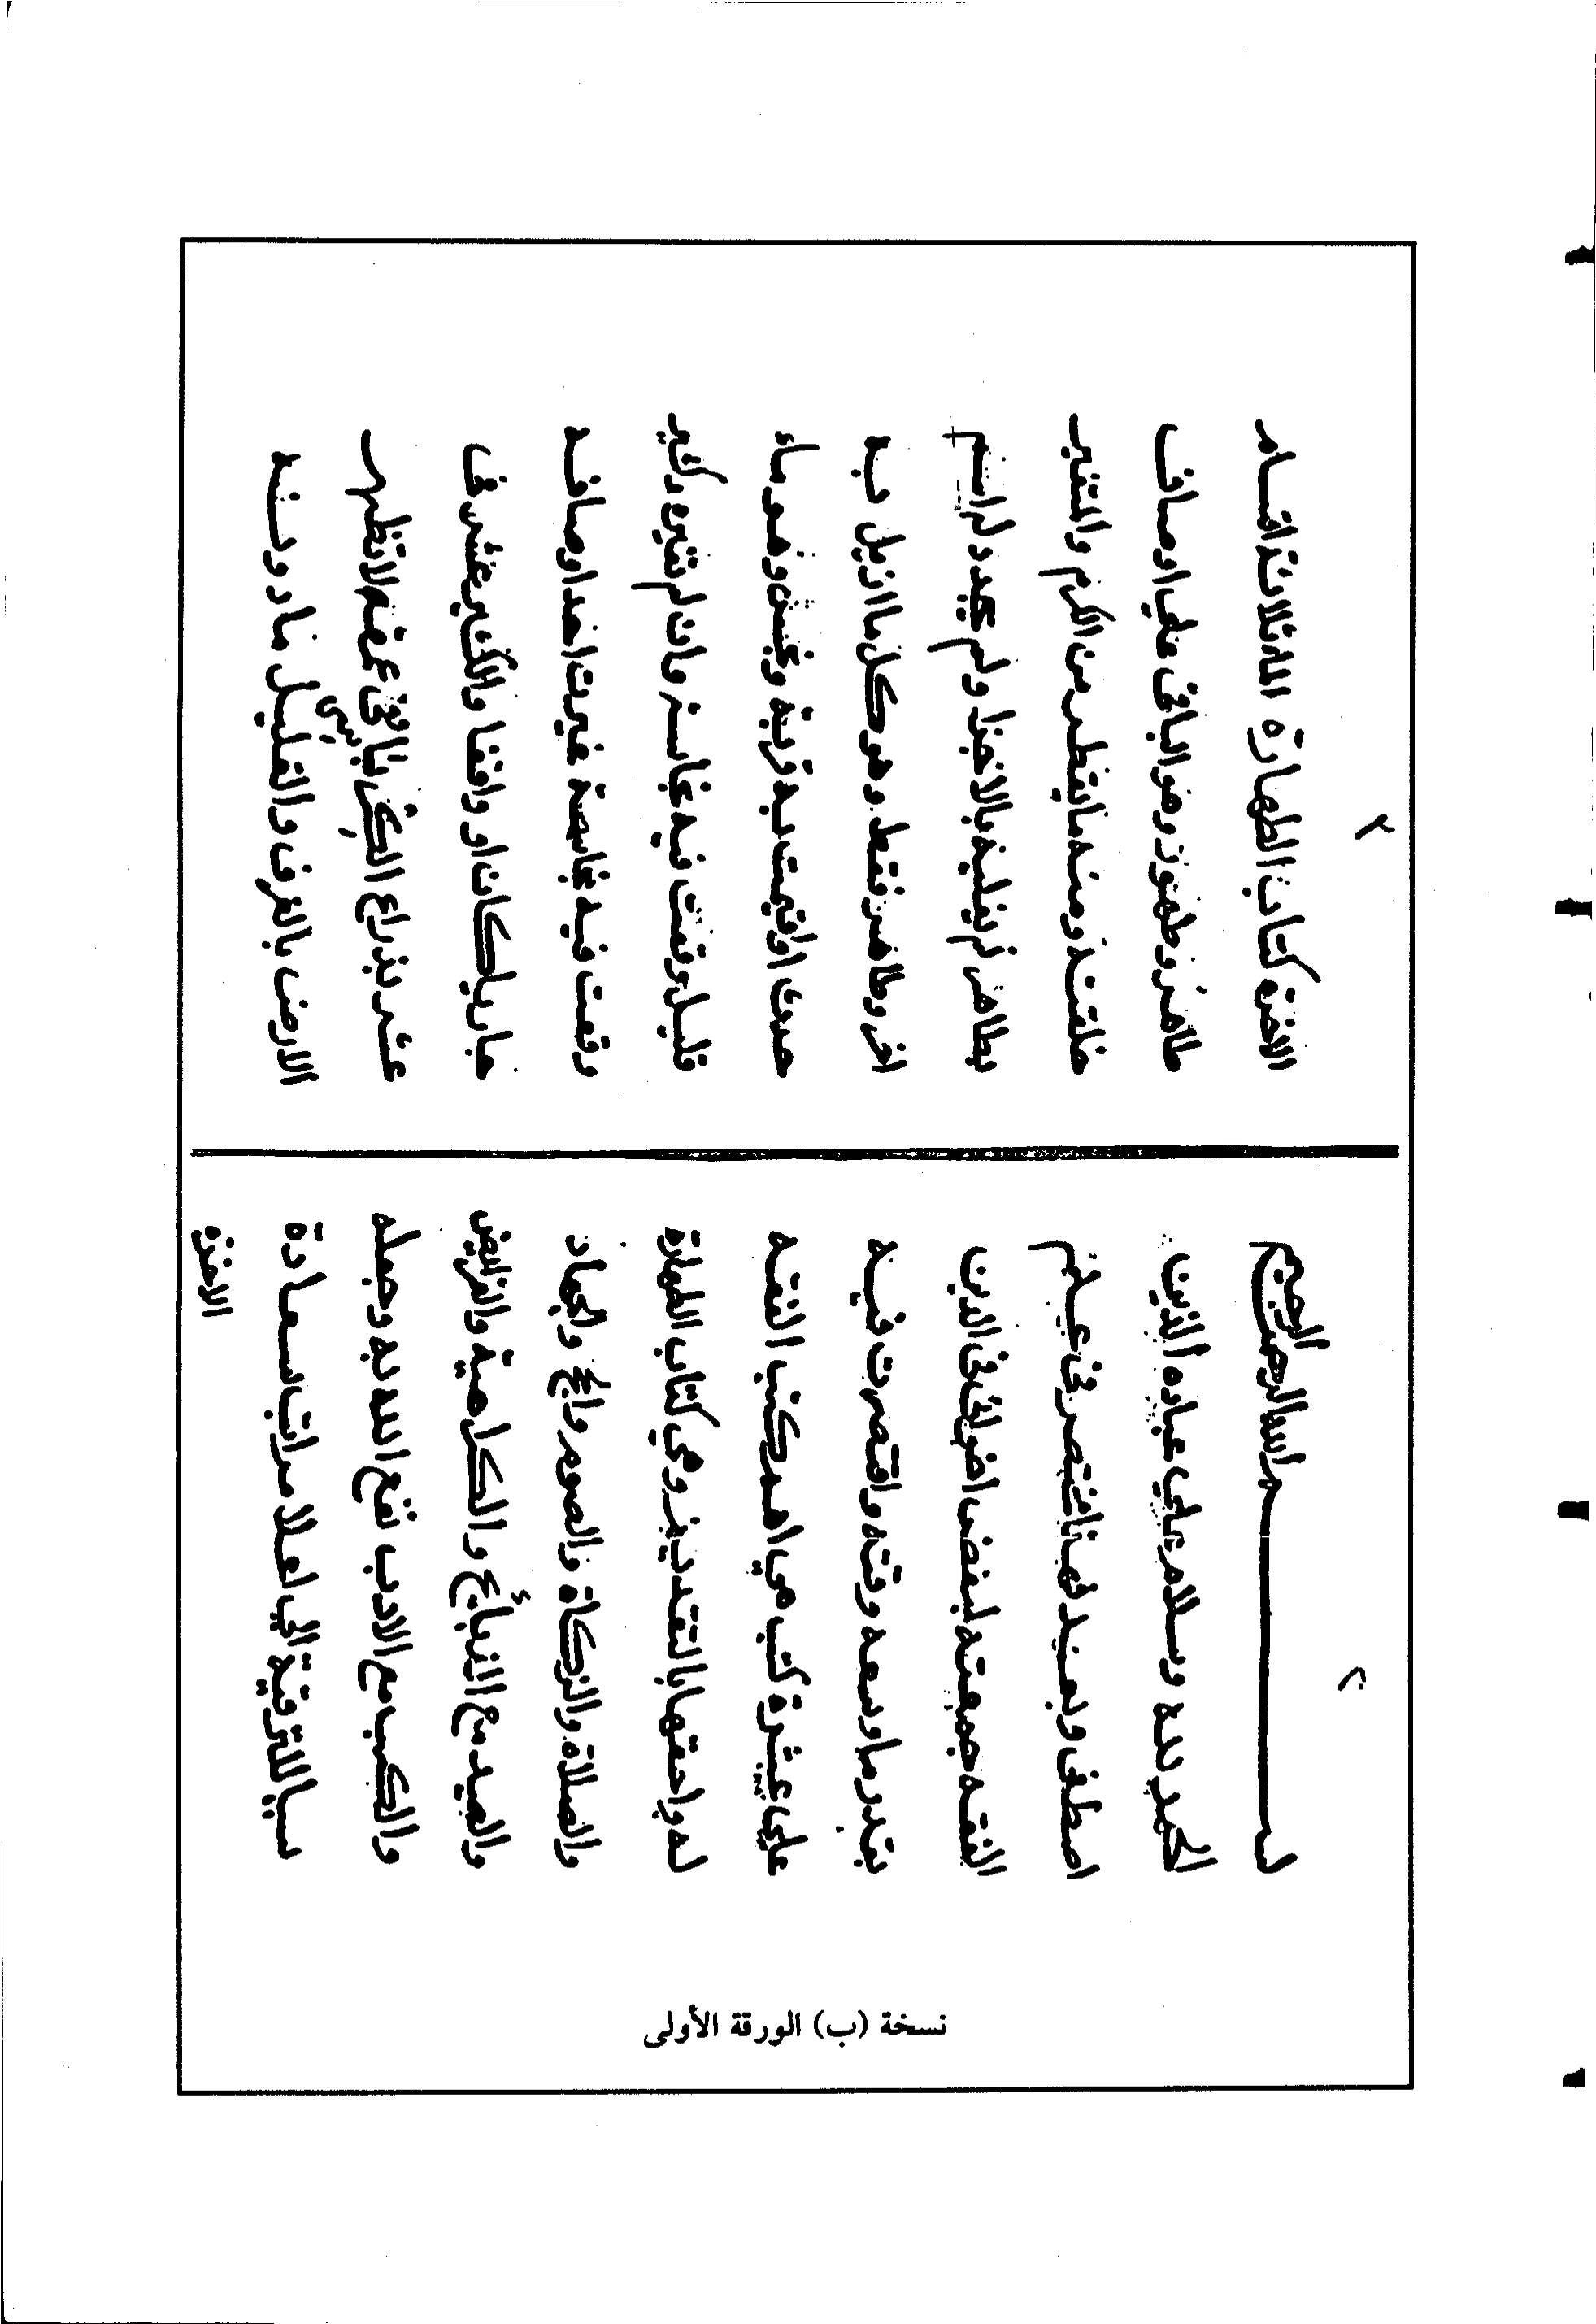 ٢
بسم الله الرحمن الرحيم
الحمد لله وسلام علي عباده الذين
اصطفي وبعد فهذا مختصر في علم
الفقه جمعته لبعض اخواني في الدين
بقدر ما وسعه وقته واقتصرت فيه
علي عشرة كتب هي اهم كتب الفقه
له واحقها بالتقديم وهي كتاب الطهارة
والصلاة والزكاة والصوم والحج والجهاد
والصيد مع الذبائح والكراهية والفرايض
والكسب مع الادب نفع الله به وجعله
سببا للترقية الي اعلا مراتب سعادة
الاخرة
٣
الاخرة كتاب الطهارة الماء ثلاثة اقسام
طاهر وطهور وهو الباقي علي اوصاف
خلقته ومنه ما يقطر من الكرم والمتغير
بطاهر لم يغلبه بالاجزا ولم يجدد له اسم
اخر وطاهر فقط وهو كل ما ازيل به
حدث او اقيمت به قربة ونجس وهو ماء
قليل وقعت فيه نجاسة وان لم تغيره وكثير
وقعت فيه نجاسة غيرت احد اوصافه
جاريا كان او واقفا والكثير عشر في
عشر بذراع الكرباس في عمق لا تظهر
الارض بالغرف والقليل ما دونه
نسخة (ب) الورقة الأولى